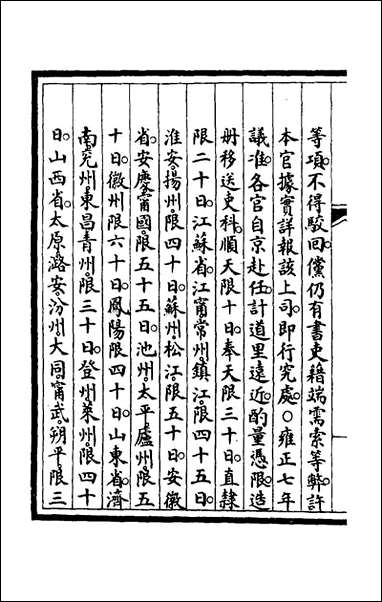 等項不得駁回儻仍有書吏藉端需索等弊許
本官據實詳報該上司即行究處〇雍正七年
議准各官自京赴任計道里遠近酌量憑限造
册移送吏科順天限十日奉天限三十日直隸
限二十日江蘇省江甯常州鎮江限四十五日
淮安揚州限四十日蘇州松江限五十日安徽
省安慶甯國限五十五日池州太平廬州限五
十日徽州限六十日鳳陽限四十日山東省濟
南兗州東昌青州限三十日登州萊州限四十
日山西省太原潞安汾州大同甯武朔平限三